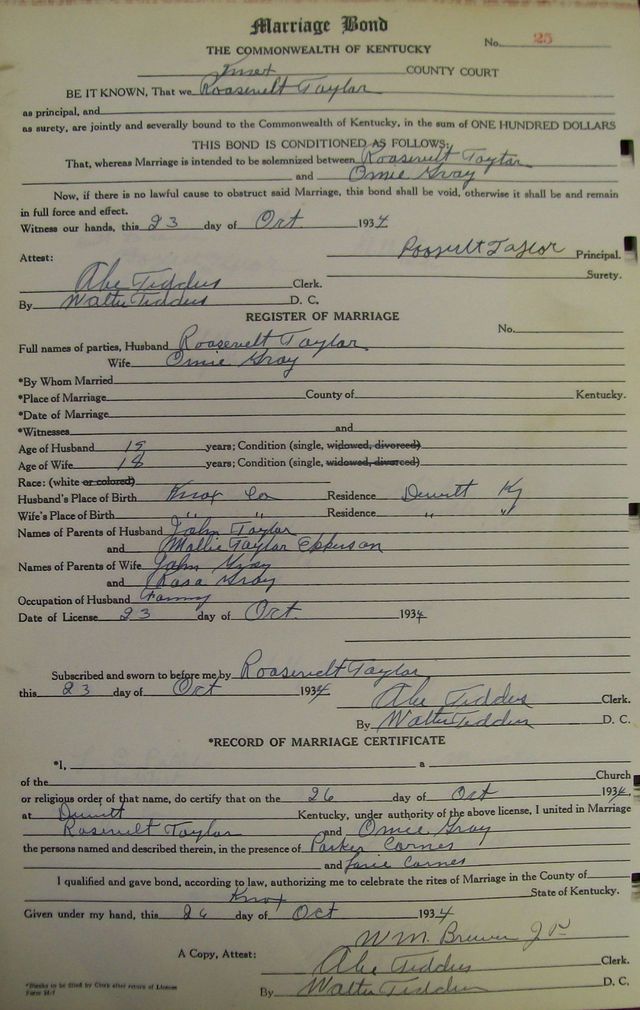 Marriage Bond
THE COMMONWEALTH OF KENTUCKY
No. 25
Knox COUNTY COURT
BE IT KNOWN, That we Roosevelt Taylor
as principal, and
as surety, are jointly and severally bound to the Commonwealth of Kentucky, in the sum of ONE HUNDRED DOLLARS
THIS BOND IS CONDITIONED AS FOLLOWS:
That, whereas Marriage is intended to be solemnized between Roosevelt Taylor
and Omie Gray
Now, if there is no lawful cause to obstruct said Marriage, this bond shall be void, otherwise it shall be and remain
in full force and effect.
Witness our hands, this 23 day of Oct 1934
Roosvelt Taylor Principal.
Attest: Surety.
Abe Teddus Clerk.
By Walter Teddus D. C.
REGISTER OF MARRIAGE
No.
Full names of parties, Husband Roosevelt Taylor
Wife Omie Gray
*By Whom Married
*Place of Marriage County of Kentucky.
*Date of Marriage
*Witnesses and
Age of Husband 19 years; Condition (single, widowed, divorced)
Age of Wife 18 years; Condition (single, widowed, divorced)
Race: (white or colored)
Husband's Place of Birth Knox Co Residence Dewitt Ky
Wife's Place of Birth " " Residence " "
Names of Parents of Husband John Taylor
and Mallie Taylor Epperson
Names of Parents of Wife John Gray
and Rosa Gray
Occupation of Husband
Date of License 23 day of Oct. 1934
Subscribed and sworn to before me by Roosevelt Taylor
this 23 day of Oct 1934
Abe Teddus Clerk.
By Walter Teddus D. C.
*RECORD OF MARRIAGE CERTIFICATE
*I, a
of the Church
or religious order of that name, do certify that on the 26 day of Oct 1934,
at Dewitt Kentucky, under authority of the above license, I united in Marriage
Rosevelt Taylor and Omie Gray
the persons named and described therein, in the presence of Parker Carnes
and Carnes
I qualified and gave bond, according to law, authorizing me to celebrate the rites of Marriage in the County of
Knox State of Kentucky.
Given under my hand, this 26 day of Oct 1934
W M. Brewer
A Copy, Attest: Abe Teddus Clerk.
By Walter Teddus D. C.
*Blanks to be filled by Clerk after return of License